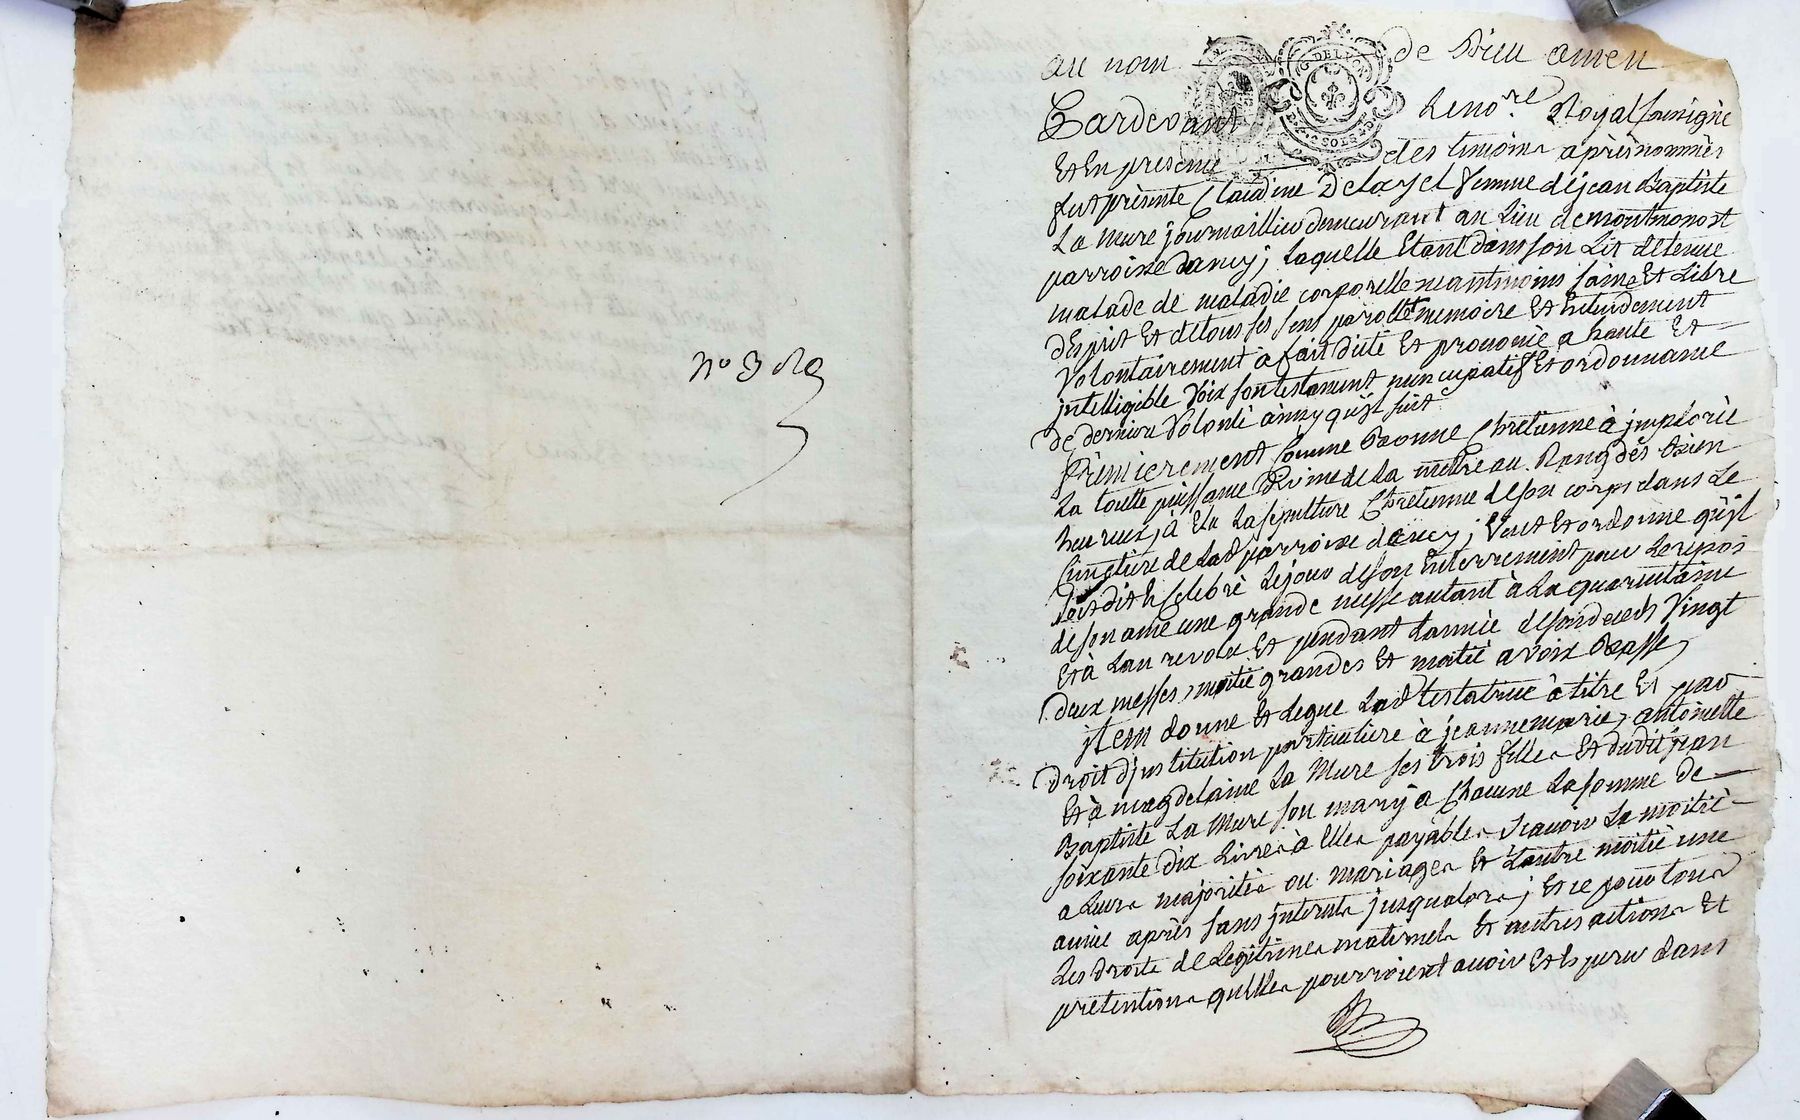 nº 3
au nom de Dieu amen
Pardevant Le no.re Royal soussigné
Et En presence des temoins après nommés
fut présente Claudine Delayel femme de jean Baptiste
La Mure journaillier demeurant au Lieu de montmonost
parroisse dancy; Laquelle Etant dans son Lit detenue
malade de maladie corporelle neantmoins saine Et Libre
desprit Et de tous ses sens parolle memoire Et Entendement
Volontairement à fait dicté Et prononcé a haute Et
jntelligible Voix son testament nuncupatif Et ordonnance
de derniere Volonté ainsy qu'jl suit
Prèmierement Comme Bonne Chretienne à jmplorée
La toutte puissance Divine de La mettre au Rang des bien
heureux, à Elu La sepulture Chretienne de son corps dans Le
Cimetiere de Lad parroisse dancy; Veut Et ordonne qu'jl
soit dit Et Celebré Le jour de son Enterrement pour Le repos
de son ame une grande messe autant à La quarantaine
Et à Lan revolu Et pendant Lannée de son deceds Vingt
deux messes, moitié grandes Et moitié a voix Basse,
jtem donne Et Legue Lad testatrice à titre Et par
droit d'jnstitution particuliere à jeanne marie, antoinette
Et à magdelaine La Mure ses trois filles Et dudit jean
Baptiste La Mure son mary a Chacune La somme de
soixante dix Livres à Elles payables scavoir La moitié
a Leurs majorités ou mariages Et Lautre moitié une
année après sans jnterets jusqualors; Et ce pour tous
Les droits de Legitimes maternels Et autres actions Et
pretentions quelles pourroient avoir Et Esperer dans